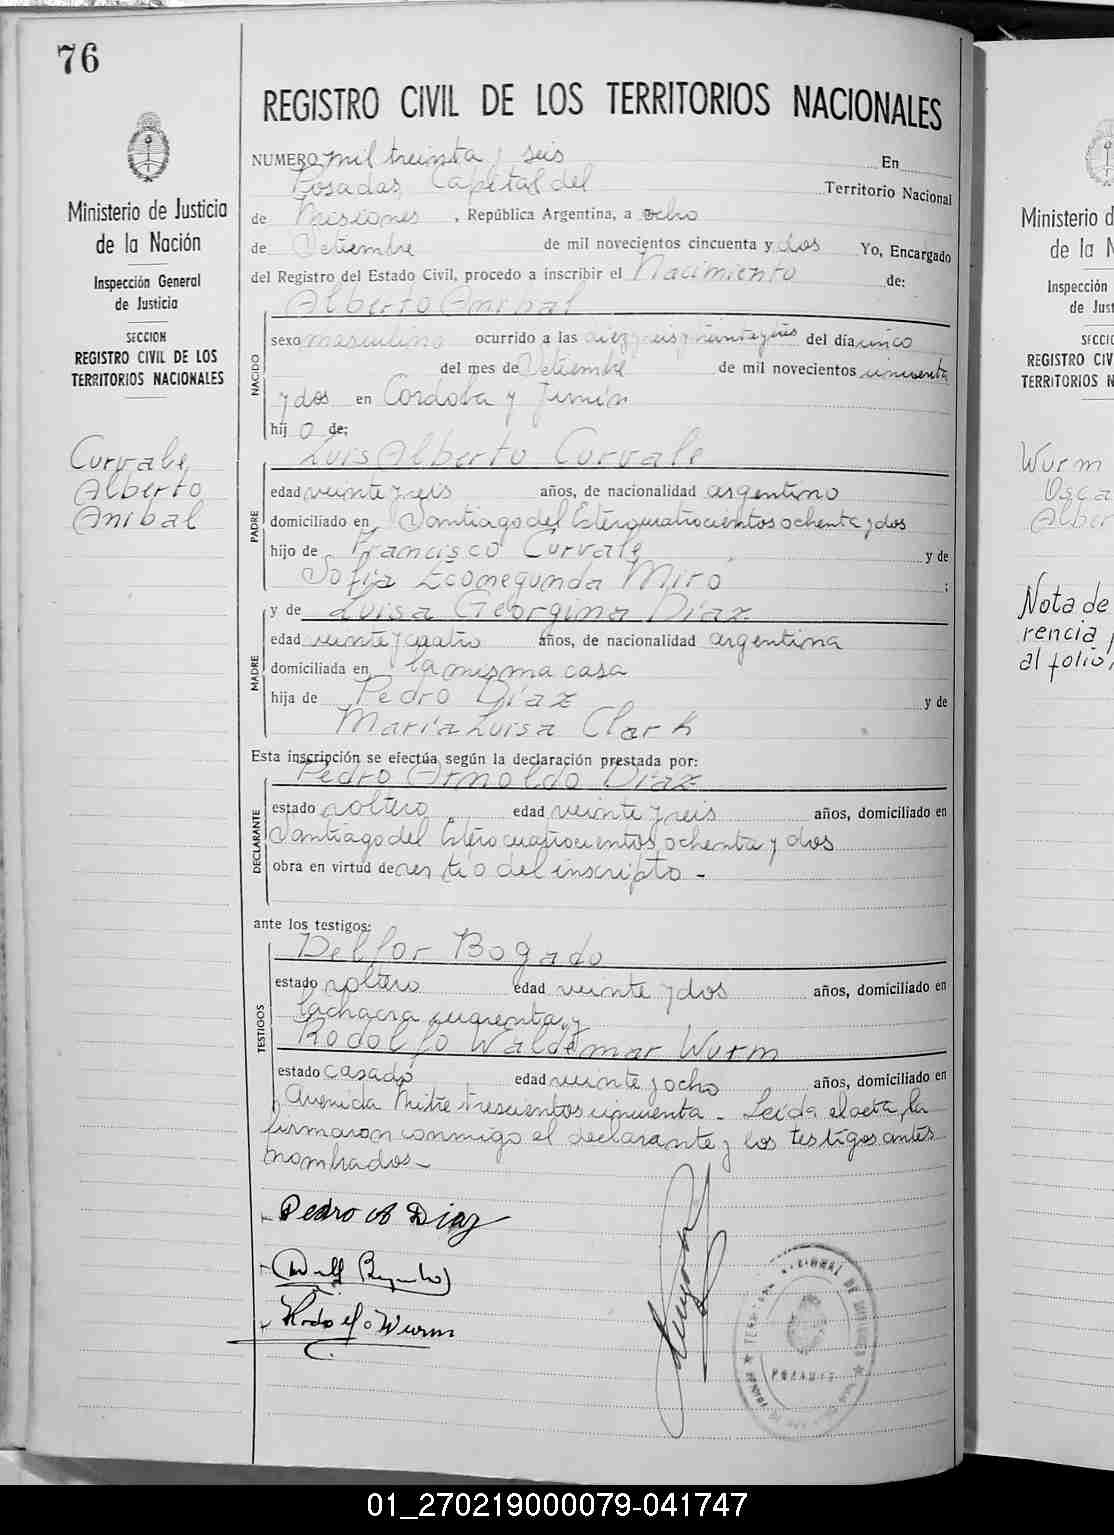 76
REGISTRO CIVIL DE LOS TERRITORIOS NACIONALES
Ministerio de Justicia
de la Nación
Inspección General
de Justicia
SECCION
REGISTRO CIVIL DE LOS
TERRITORIOS NACIONALES
Curvale,
Alberto
Anibal
NUMERO mil treinta y seis En
Posadas, Capital del Territorio Nacional
de Misiones, República Argentina, a ocho
de Setiembre de mil novecientos cincuenta y dos Yo, Encargado
del Registro del Estado Civil, procedo a inscribir el Nacimiento de:
Alberto Anibal
NACIDO
sexo masculino ocurrido a las diez y seis y treinta y seis del día uno
del mes de Setiembre de mil novecientos cincuenta
y dos en Cordoba y Junin
hijo de:
Luis Alberto Curvale
PADRE
edad veinte y seis años, de nacionalidad argentino
domiciliado en Santiago del Estero cuatrocientos ochenta y dos
hijo de Francisco Curvale y de
Sofia Miró ;
y de Luisa Georgina Diaz
MADRE
edad veinte y cuatro años, de nacionalidad argentina
domiciliada en la misma casa
hija de Pedro Diaz y de
Maria Luisa Clark
Esta inscripción se efectúa según la declaración prestada por:
Pedro Arnoldo Diaz
DECLARANTE
estado soltero edad veinte y seis años, domiciliado en
Santiago del Estero cuatrocientos ochenta y dos
obra en virtud de ser tio del inscripto -
ante los testigos:
Delfor Bogado
TESTIGOS
estado soltero edad veinte y dos años, domiciliado en
la chacra cuarenta, y
Rodolfo Waldemar Wurm
estado casado edad veinte y ocho años, domiciliado en
Avenida Mitre trescientos cincuenta - Leida el acta, la
firmaron conmigo el declarante y los testigos antes
nombrados -
Pedro A Diaz
Rodolfo Wurm
POSADAS
Ministerio d
de la N
Inspección
de Just
SECCIO
REGISTRO CIV
TERRITORIOS N
Wurm
Osca
Alber
Nota de
rencia p
al folio
01_270219000079-041747